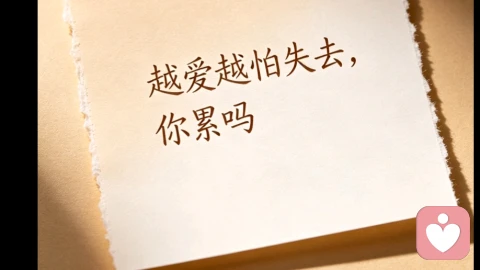 越爱越怕失去，
你累吗